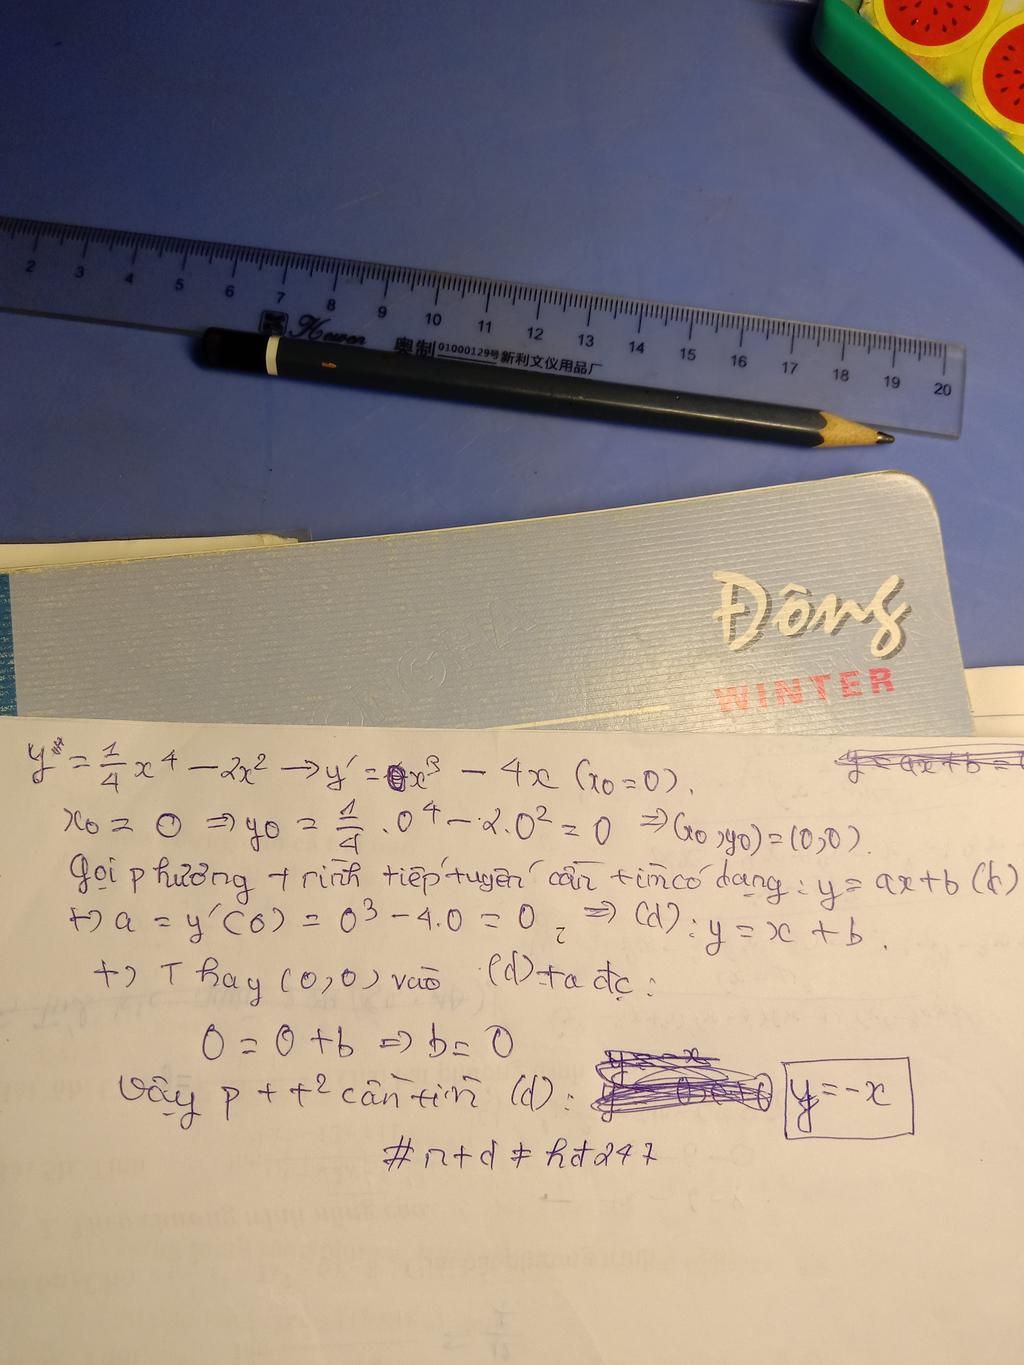 2 3 4 5 6 7 8 9 10 11 12 13 14 15 16 17 18 19 20
奥制 01000129号 新利文仪用品厂
Đông
WINTER
y = 1/4 x⁴ − 2x² → y' = x³ − 4x (x₀ = 0).
x₀ = 0 ⇒ y₀ = 1/4 . 0⁴ − 2.0² = 0 ⇒ (x₀, y₀) = (0,0).
Gọi phương trình tiếp tuyến cần tìm có dạng: y = ax + b (d)
+) a = y'(0) = 0³ − 4.0 = 0 ⇒ (d): y = x + b.
+) Thay (0,0) vào (d) ta đc:
0 = 0 + b ⇒ b = 0
Vậy p t t² cần tìm (d): y = −x